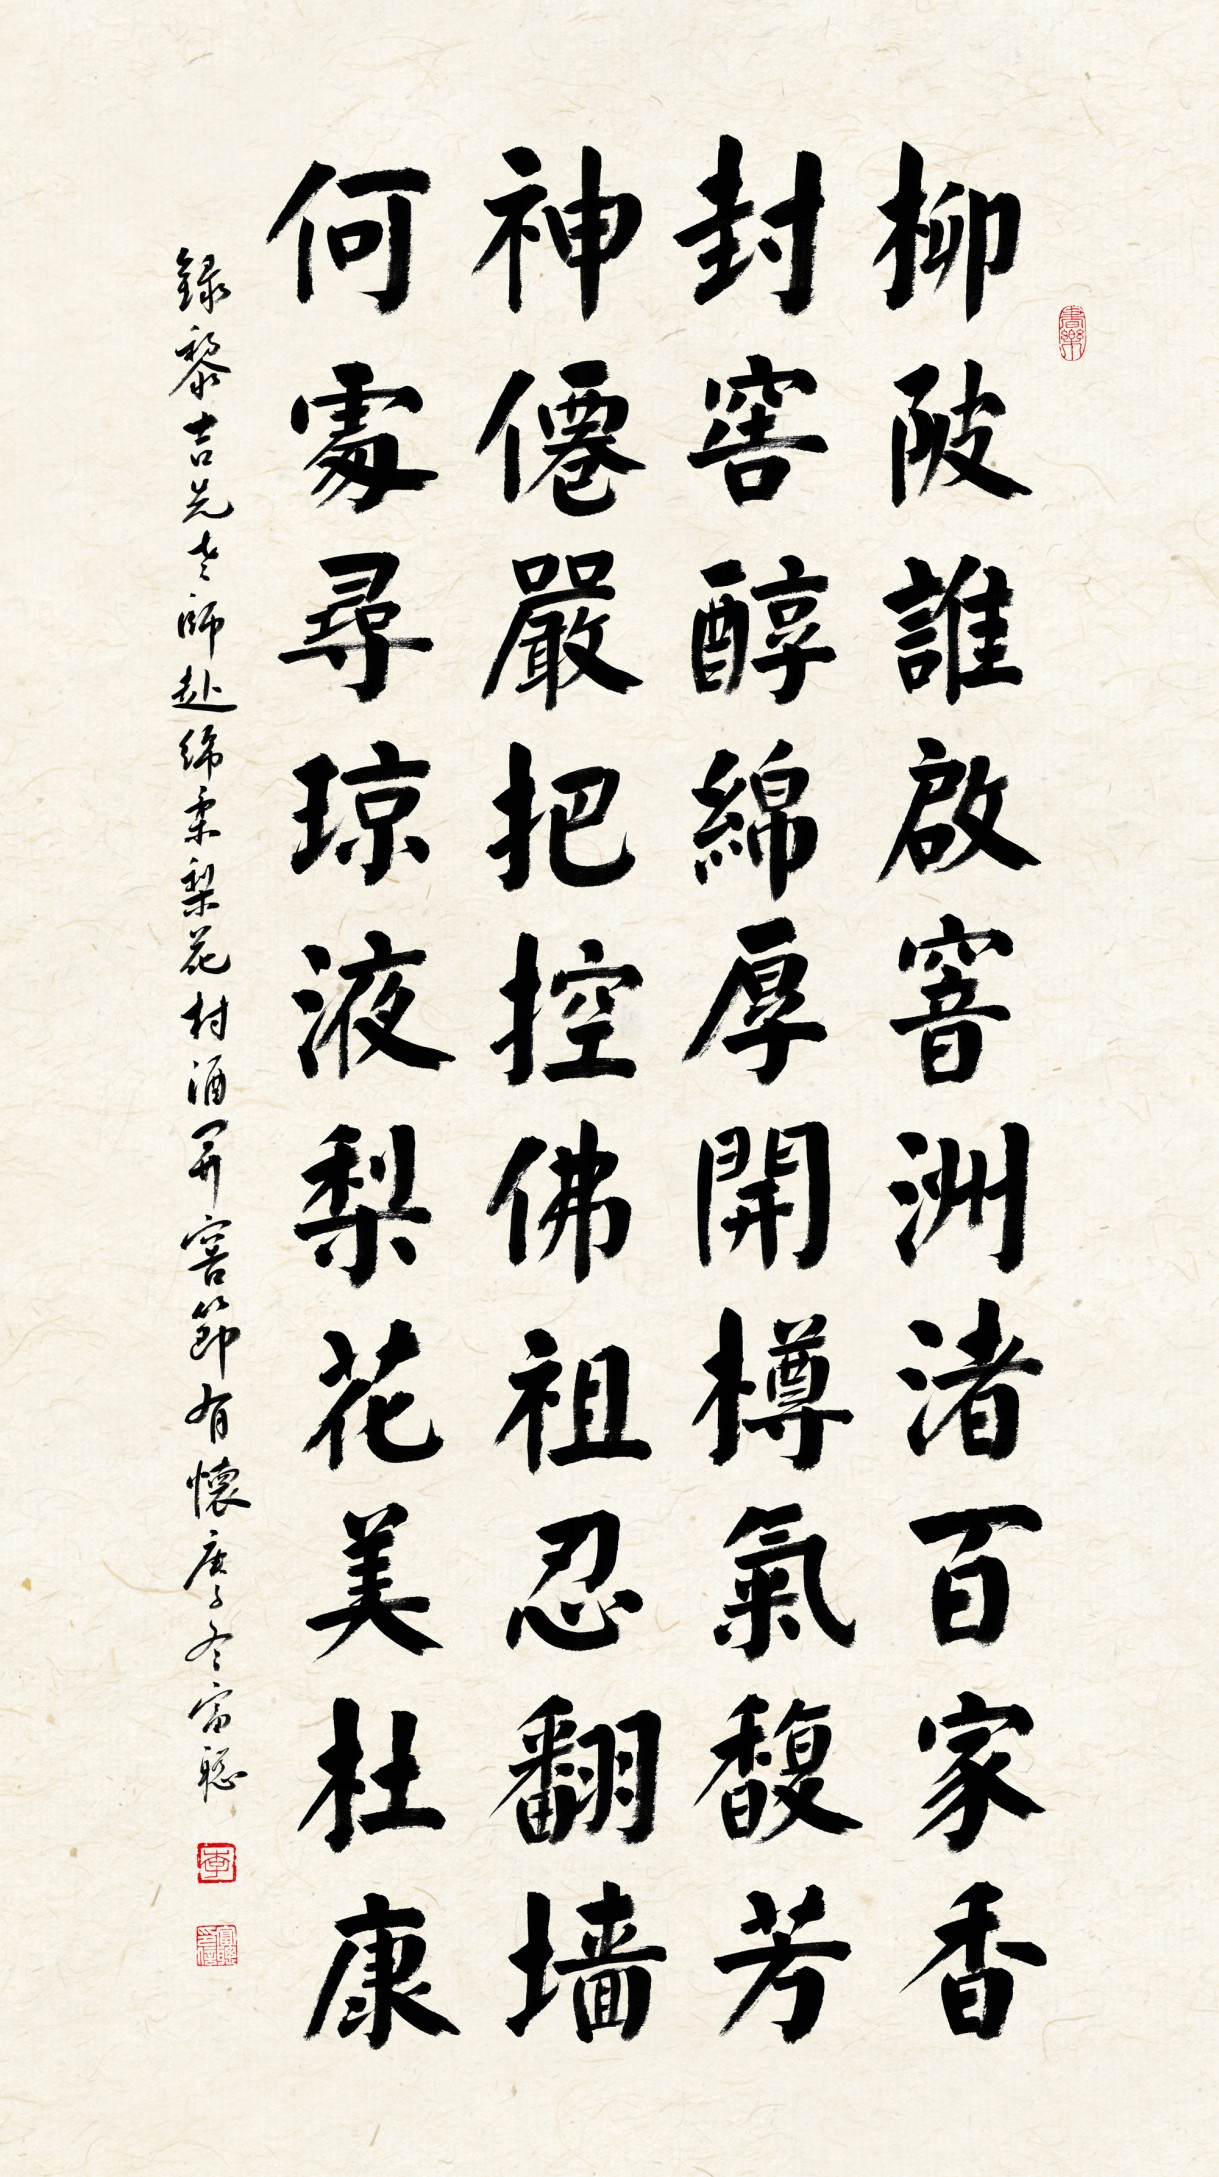 柳陂誰啟窨洲渚百家香
封窖醇綿厚開樽氣馥芳
神僊嚴把控佛祖忍翻墙
何處尋琼液梨花美杜康
錄黎吉先老師赴綿柔梨花村酒开窖節有懷庚子冬富聪
書樂
李